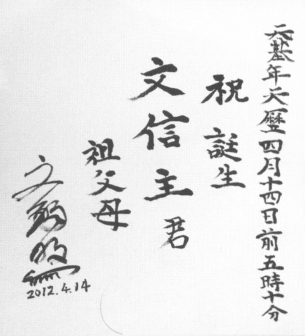 天基年天曆四月十四日前五時十分
祝誕生
文信主君
祖父母
文鮮明
2012.4.14